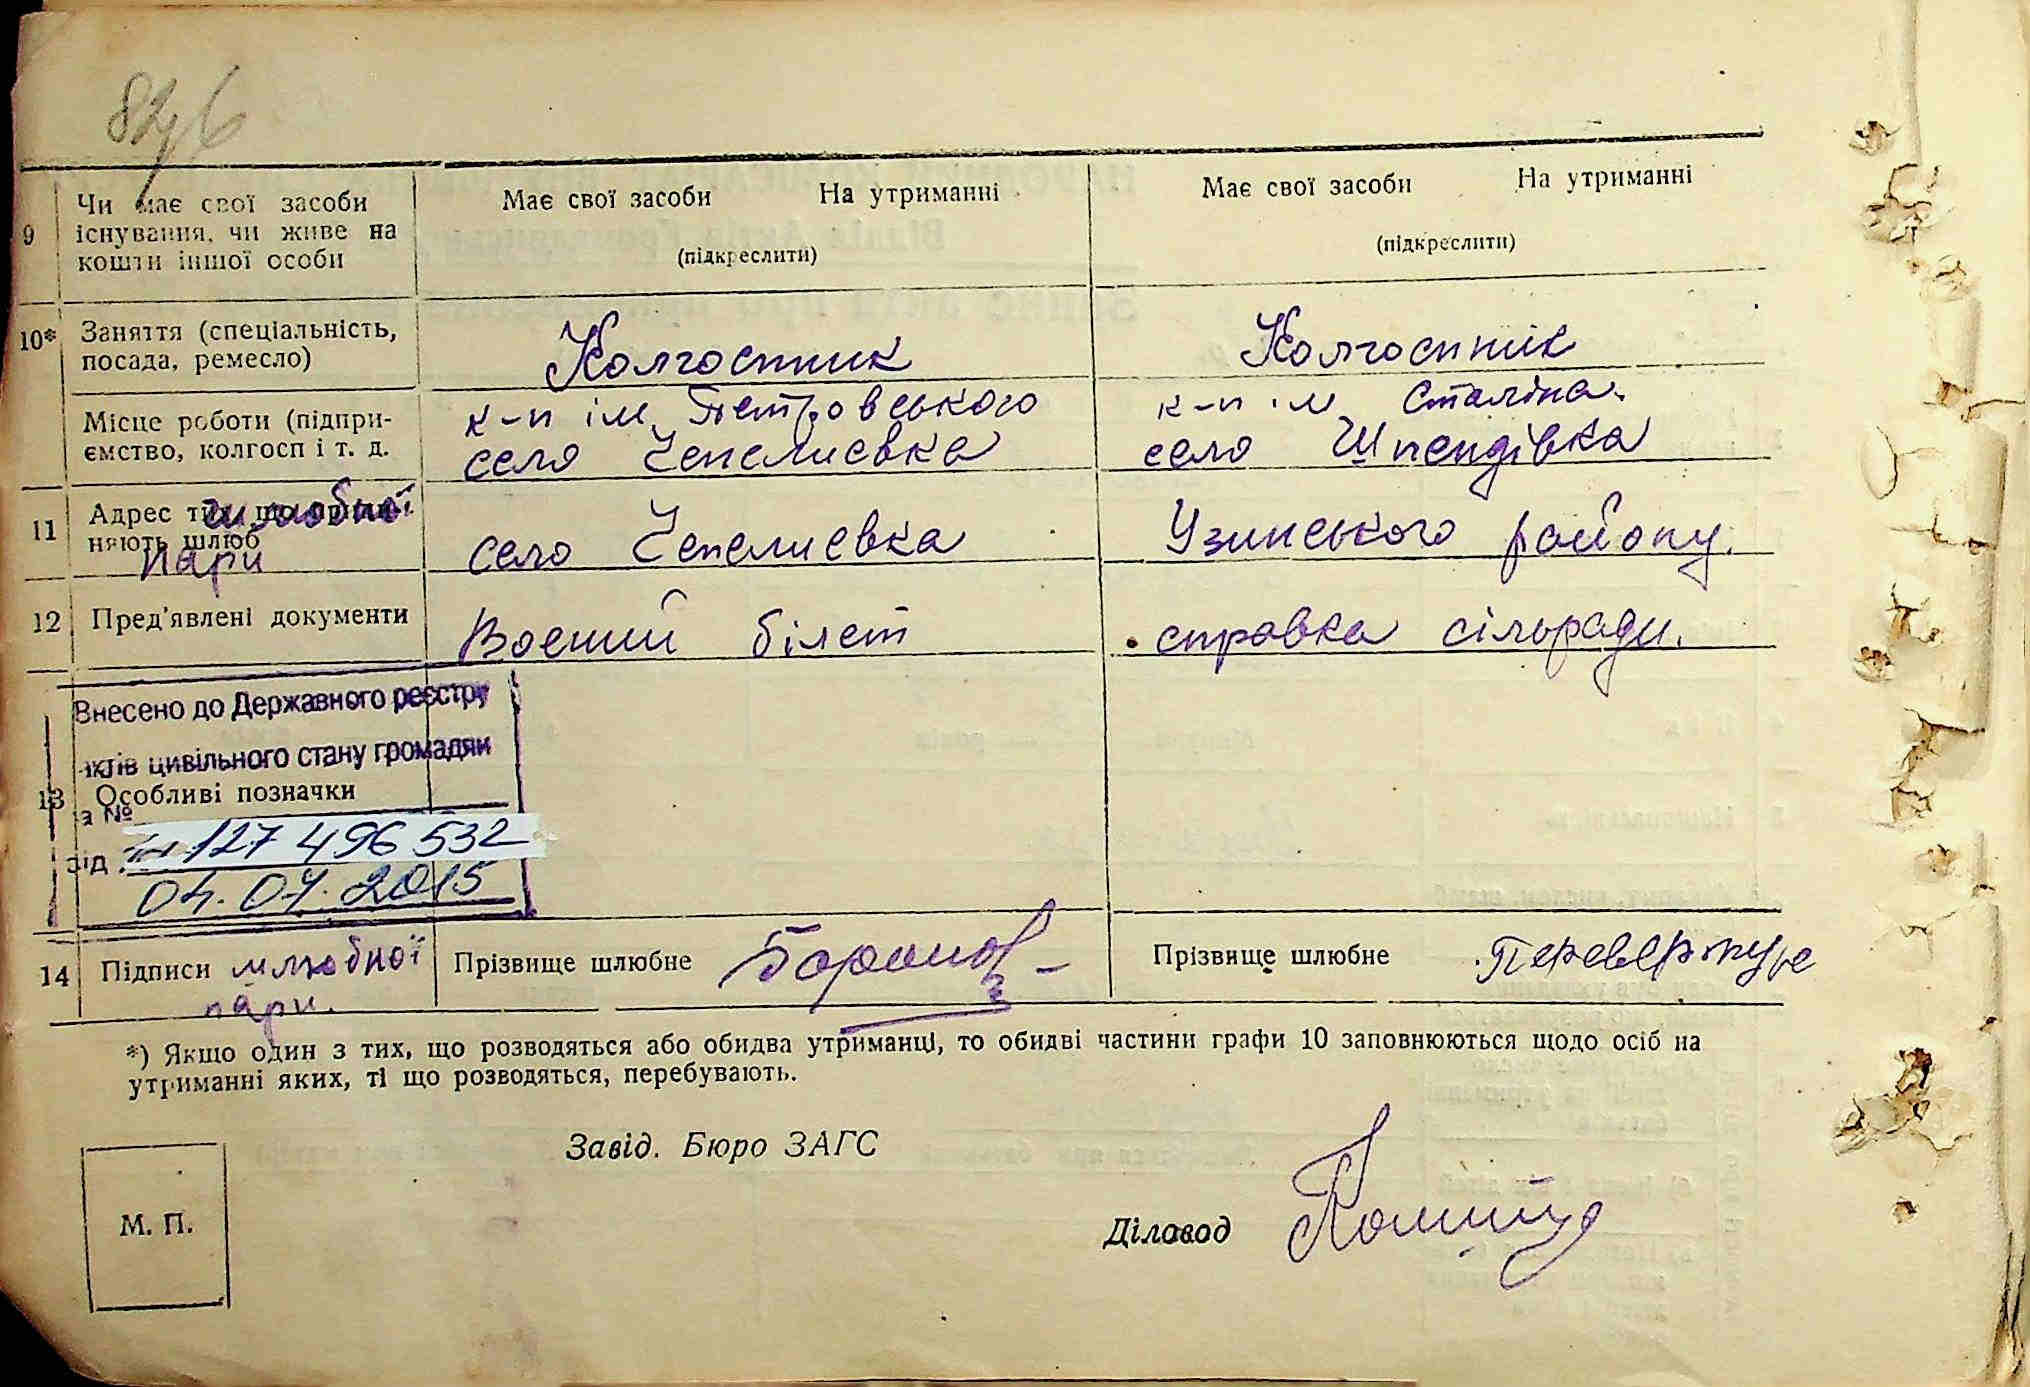 9 Чи має свої засоби
існування, чи живе на
кошти іншої особи
Має свої засоби На утриманні
(підкреслити)
Має свої засоби На утриманні
(підкреслити)
10* Заняття (спеціальність,
посада, ремесло)
Колгоспник
Колгоспник
Місце роботи (підпри-
ємство, колгосп і т. д.
к-п ім. Петровського
село Чепелиевка
к-п ім. Сталіна.
село Шпендівка
11 Адрес тих, що припи-
няють шлюб
шлюбної
пари
село Чепелиевка
Узинського району.
12 Пред'явлені документи
Воений білет
справка сільради.
Внесено до Державного реєстру
актів цивільного стану громадян
13 Особливі позначки
за №
127 496 532
від
04.07.2015
14 Підписи шлюбної
пари.
Прізвище шлюбне
Прізвище шлюбне
*) Якщо один з тих, що розводяться або обидва утриманці, то обидві частини графи 10 заповнюються щодо осіб на
утриманні яких, ті що розводяться, перебувають.
Завід. Бюро ЗАГС
М. П.
Діловод